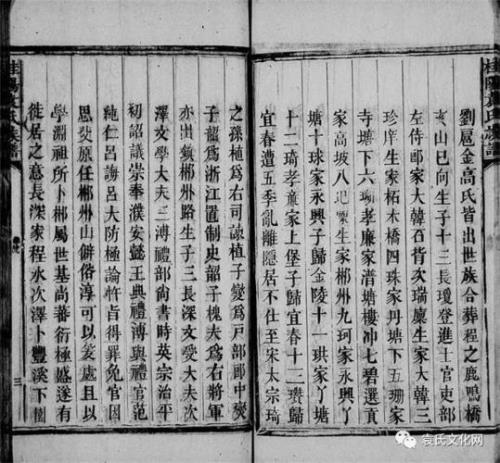 劉扈金高氏皆出世族合葬程之鹿鳴橋
山巳向生子十三長瓊登進士官吏部
左侍郎家大韓石背次瑞慶生家大韓三
珍庠生家柘木橋四珠家丹塘下五珊家
寺塘下六瑚孝廉家潽塘樓冲七碧選貢
家高坡八瓊廪生家郴州九珂家永興丫
塘十球家永興子歸金陵十一珙家丫塘
十二琦孝童家上堡子歸宜春十三璝歸
宜春遭五季亂離隱居不仕至宋太宗琦
之孫植爲右司諫植子燮爲戸部郎中燮
子韶爲浙江置制史韶子槐夫爲右將軍
亦出鎮郴州路生子三長深文受大夫次
澤文學大夫三溥禮部尙書時英宗治平
初詔議崇奉濮安懿王典禮溥與禮官范
純仁呂誨呂大防極論忤旨得罪免官因
思癸原任郴州山併俗淳可以㝎處且以
學淵祖所卜郴屬世基尚蕃衍極盛遂有
徙居之意長深家程水次澤卜豐溪下團
桂陽袁氏族譜
三
袁氏文化网